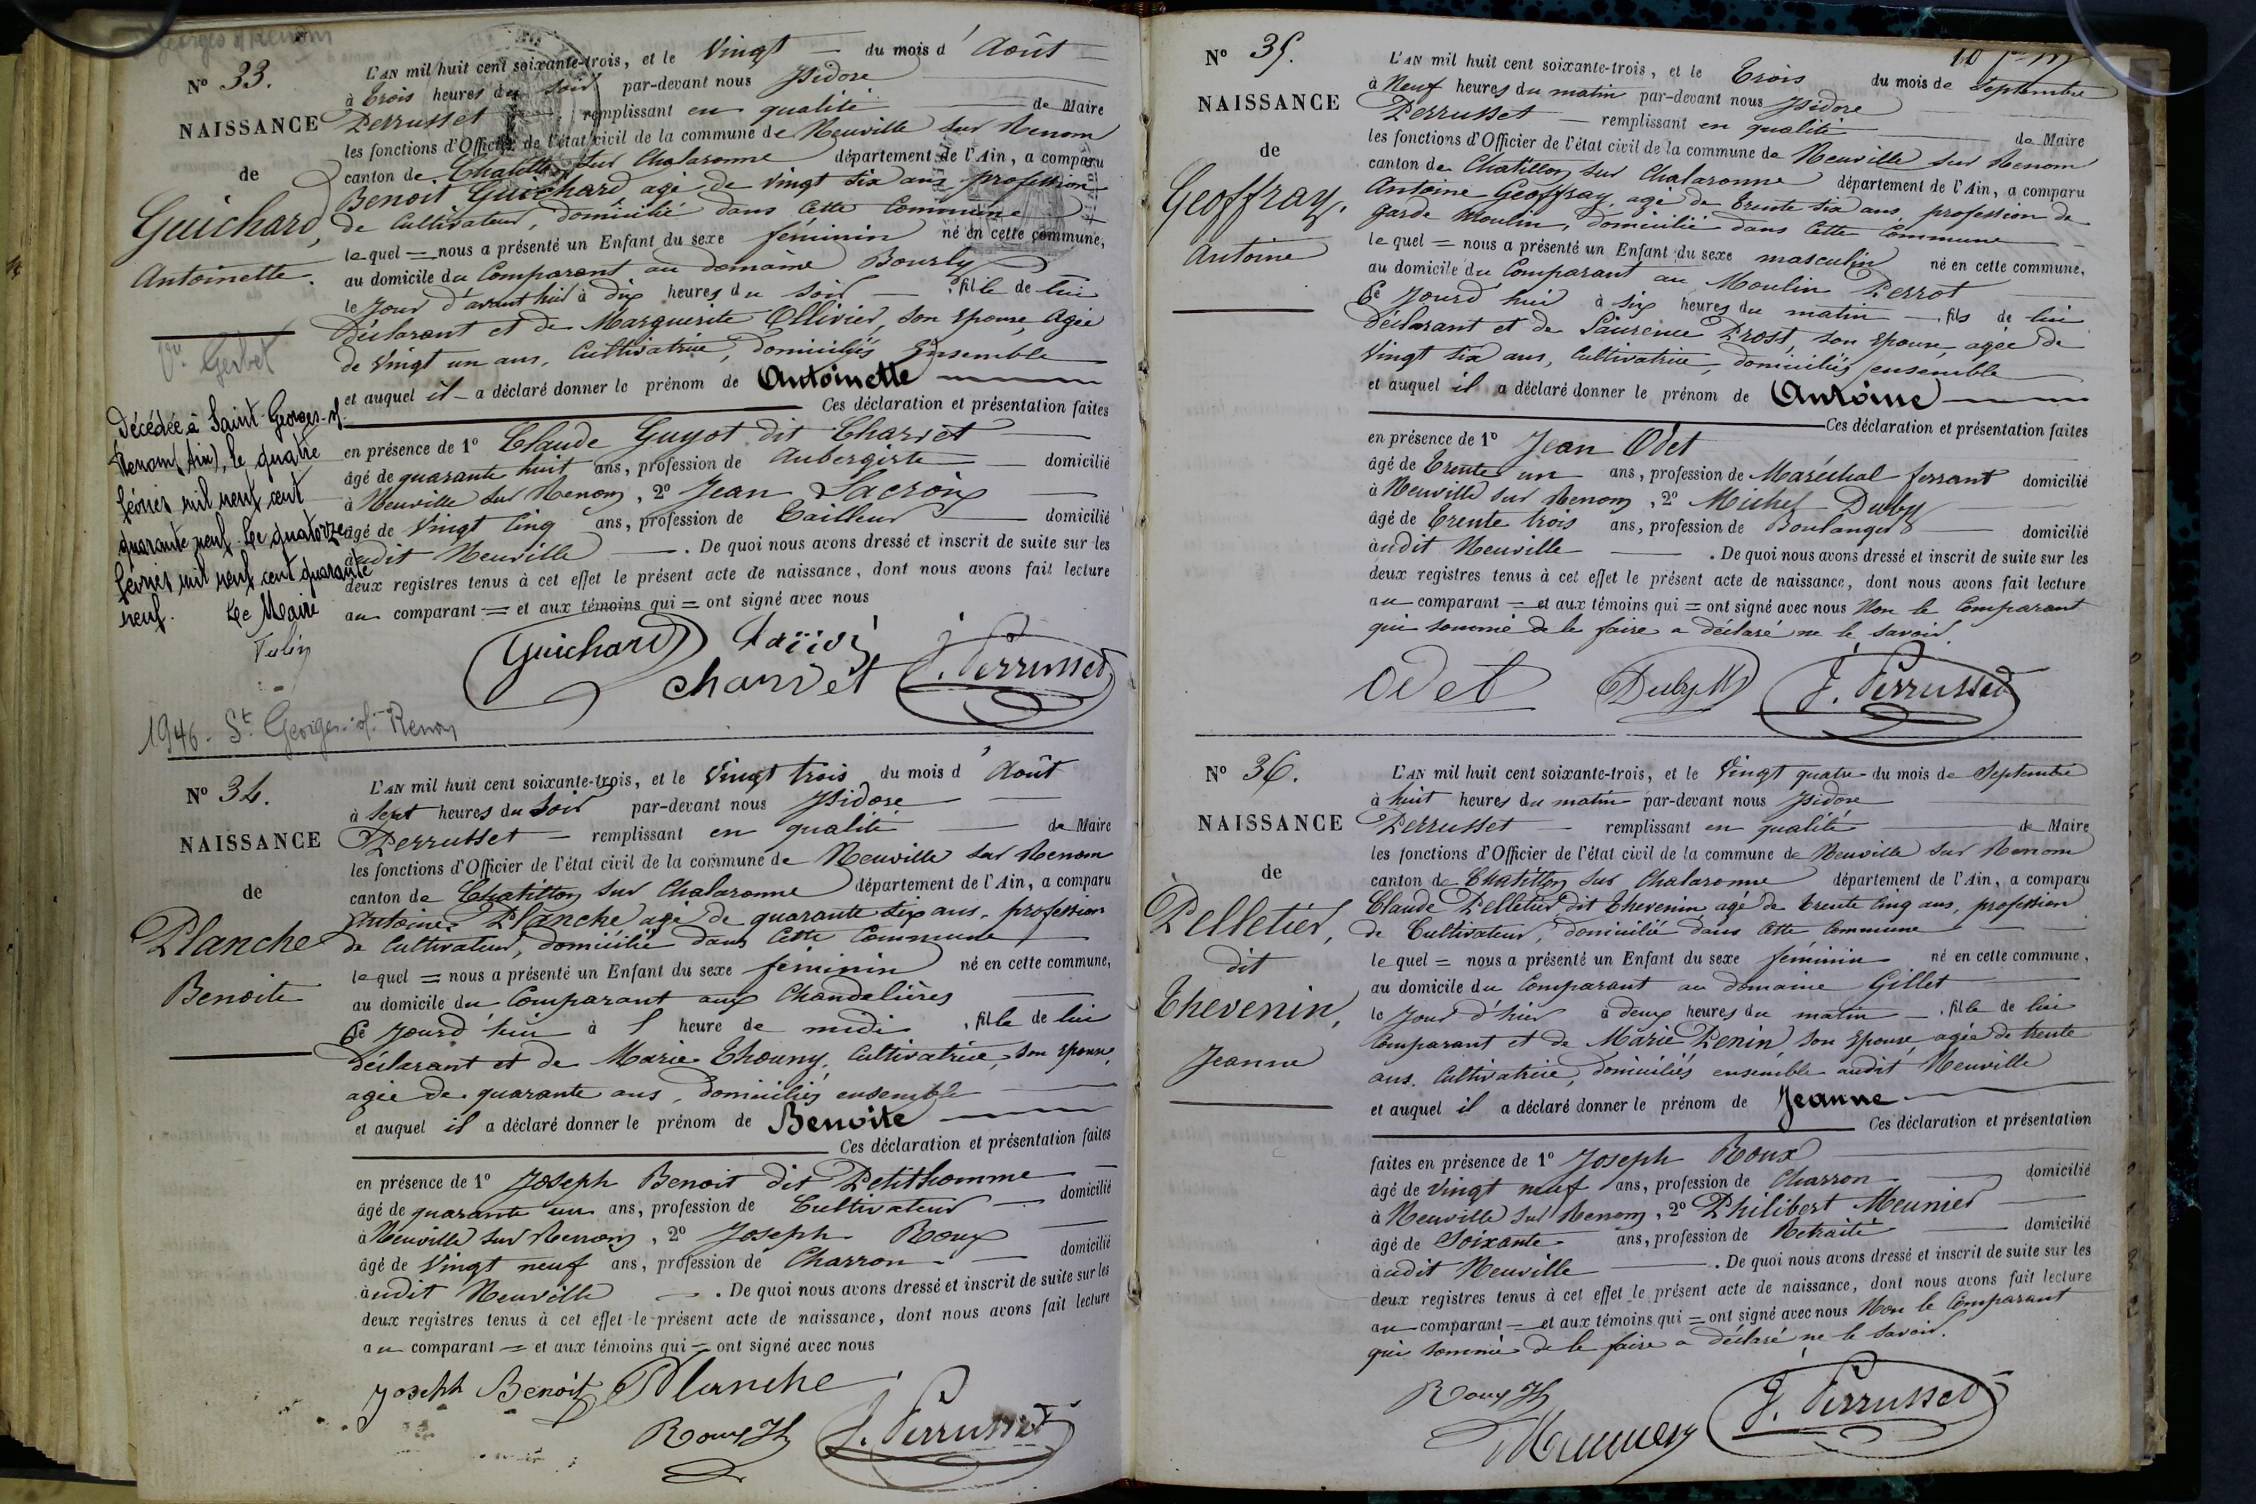 Georges s/ Renom
N° 33.
NAISSANCE
de
Guichard,
Antoinette.
Vve Gerbet
Décédée à Saint-Georges-s/-
Renom (Ain), le quatre
février mil neuf cent
quarante neuf. Le quatorze
février mil neuf cent quarante
neuf. Le Maire
1946 - St Georges-s/-Renom
L'AN mil huit cent soixante-trois, et le Vingt du mois d'Août
à trois heures du soir par-devant nous Isidore
Perrusset remplissant en qualité de Maire
les fonctions d'Officier de l'état civil de la commune de Neuville sur Renom
canton de Chatillon sur Chalaronne département de l'Ain, a comparu
Benoit Guichard agé de vingt six ans profession
de Cultivateur, domicilié dans cette Commune
lequel = nous a présenté un Enfant du sexe féminin né en cette commune,
au domicile du Comparant au domaine Bourly
le Jour d'avant hier à dix heures du soir, fille de lui
Déclarant et de Marguerite Ollivier, son épouse, Agée
de vingt un ans, Cultivatrice, domiciliés Ensemble
et auquel il a déclaré donner le prénom de Antoinette
Ces déclaration et présentation faites
en présence de 1° Claude Guyot dit Charvet
âgé de quarante huit ans, profession de Aubergiste domicilié
à Neuville sur Renom, 2° Jean Lacroix
âgé de Vingt Cinq ans, profession de Tailleur domicilié
audit Neuville. De quoi nous avons dressé et inscrit de suite sur les
deux registres tenus à cet effet le présent acte de naissance, dont nous avons fait lecture
au comparant = et aux témoins qui = ont signé avec nous
Guichard
charvet J. Perrusset
N° 34.
NAISSANCE
de
Planche
Benoite
L'AN mil huit cent soixante-trois, et le Vingt trois du mois d'Août
à Sept heures du Soir par-devant nous Isidore
Perrusset remplissant en qualité de Maire
les fonctions d'Officier de l'état civil de la commune de Neuville sur Renom
canton de Chatillon sur Chalaronne département de l'Ain, a comparu
Antoine Planche agé de quarante six ans, profession
de Cultivateur, domicilié dans Cette Commune
lequel = nous a présenté un Enfant du sexe féminin né en cette commune,
au domicile du Comparant aux Chandelières
Ce Jourd'hui à l heure de midi, fille de lui
déclarant et de Marie Thouny, Cultivatrice, son épouse,
agée de quarante ans, domiciliés ensemble
et auquel il a déclaré donner le prénom de Benoite
Ces déclaration et présentation faites
en présence de 1° Joseph Benoit dit Petithomme
âgé de quarante un ans, profession de Cultivateur domicilié
à Neuville sur Renom, 2° Joseph Roux
âgé de Vingt neuf ans, profession de Charron domicilié
audit Neuville. De quoi nous avons dressé et inscrit de suite sur les
deux registres tenus à cet effet le présent acte de naissance, dont nous avons fait lecture
au comparant = et aux témoins qui = ont signé avec nous
Joseph Benoit Planche
Roux Jh J. Perrusset
N° 35.
NAISSANCE
de
Geoffray,
Antoine
L'AN mil huit cent soixante-trois, et le Trois du mois de Septembre
à Neuf heures du matin par-devant nous Isidore
Perrusset remplissant en qualité de Maire
les fonctions d'Officier de l'état civil de la commune de Neuville sur Renom
canton de Chatillon sur Chalaronne département de l'Ain, a comparu
Antoine Geoffray, agé de trente six ans, profession de
garde Moulin, domicilié dans Cette Commune
lequel = nous a présenté un Enfant du sexe masculin né en cette commune,
au domicile du Comparant au Moulin Perrot
Ce Jourd'hui à six heures du matin, fils de lui
Déclarant et de Laurence Prost, son épouse, agée de
Vingt six ans, Cultivatrice, domiciliés ensemble
et auquel il a déclaré donner le prénom de Antoine
Ces déclaration et présentation faites
en présence de 1° Jean Odet
âgé de Trente un ans, profession de Maréchal ferrant domicilié
à Neuville sur Renom, 2° Michel Duby
âgé de Trente trois ans, profession de Boulanger domicilié
audit Neuville. De quoi nous avons dressé et inscrit de suite sur les
deux registres tenus à cet effet le présent acte de naissance, dont nous avons fait lecture
au comparant = et aux témoins qui = ont signé avec nous Non le Comparant
qui sommé de le faire a déclaré ne le savoir.
Odet Duby M J. Perrusset
N° 36.
NAISSANCE
de
Pelletier,
dit
Thevenin,
Jeanne
L'AN mil huit cent soixante-trois, et le Vingt quatre du mois de Septembre
à huit heures du matin par-devant nous Isidore
Perrusset remplissant en qualité de Maire
les fonctions d'Officier de l'état civil de la commune de Neuville sur Renom
canton de Chatillon sur Chalaronne département de l'Ain, a comparu
Claude Pelletier dit Thevenin agé de trente cinq ans, profession
de Cultivateur, domicilié dans Cette Commune
lequel = nous a présenté un Enfant du sexe féminin né en cette commune,
au domicile du Comparant au domaine Gillet
le Jour d'hier à deux heures du matin, fille de lui
Comparant et de Marie Penin, son épouse, agée de trente
ans. Cultivatrice, domiciliés ensemble audit Neuville
et auquel il a déclaré donner le prénom de Jeanne
Ces déclaration et présentation
faites en présence de 1° Joseph Roux
âgé de Vingt neuf ans, profession de Charron domicilié
à Neuville sur Renom, 2° Philibert Meunier
âgé de Soixante ans, profession de Retraité domicilié
audit Neuville. De quoi nous avons dressé et inscrit de suite sur les
deux registres tenus à cet effet le présent acte de naissance, dont nous avons fait lecture
au comparant = et aux témoins qui = ont signé avec nous Non le Comparant
qui sommé de le faire a déclaré ne le savoir.
Roux Jh
Meunier J. Perrusset